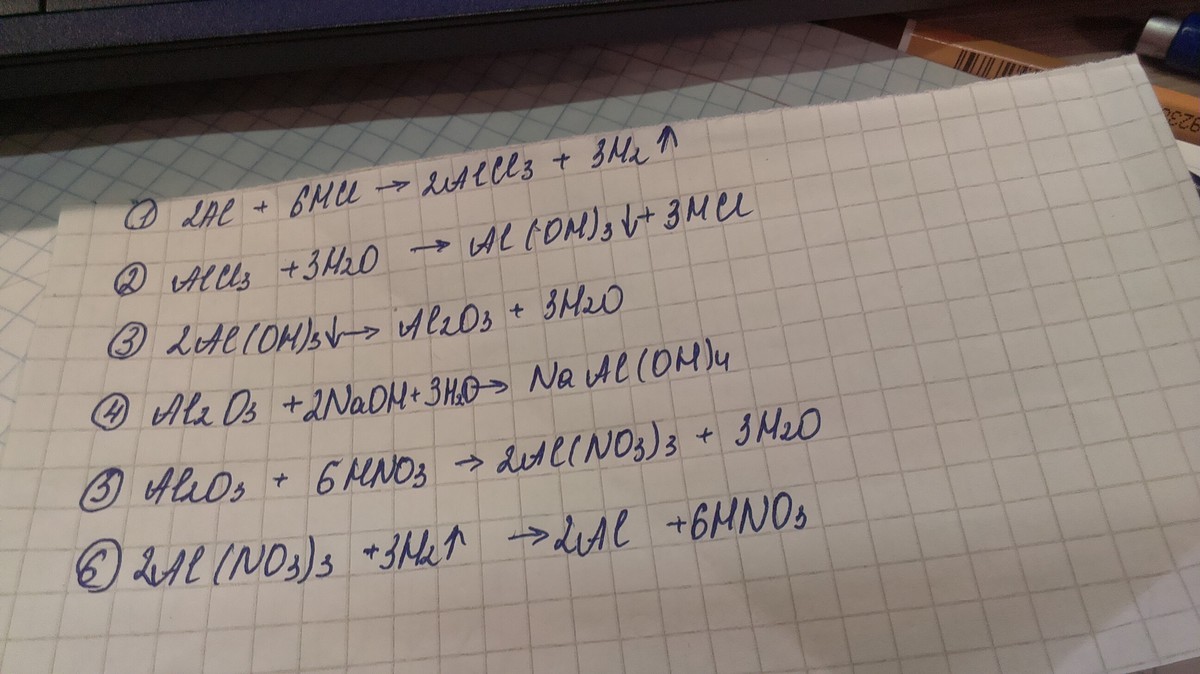 ① 2Al + 6HCl → 2AlCl3 + 3H2↑
② AlCl3 + 3H2O → Al(OH)3↓ + 3HCl
③ 2Al(OH)3↓ → Al2O3 + 3H2O
④ Al2O3 + 2NaOH + 3H2O → NaAl(OH)4
⑤ Al2O3 + 6HNO3 → 2Al(NO3)3 + 3H2O
⑥ 2Al(NO3)3 + 3H2↑ → 2Al + 6HNO3